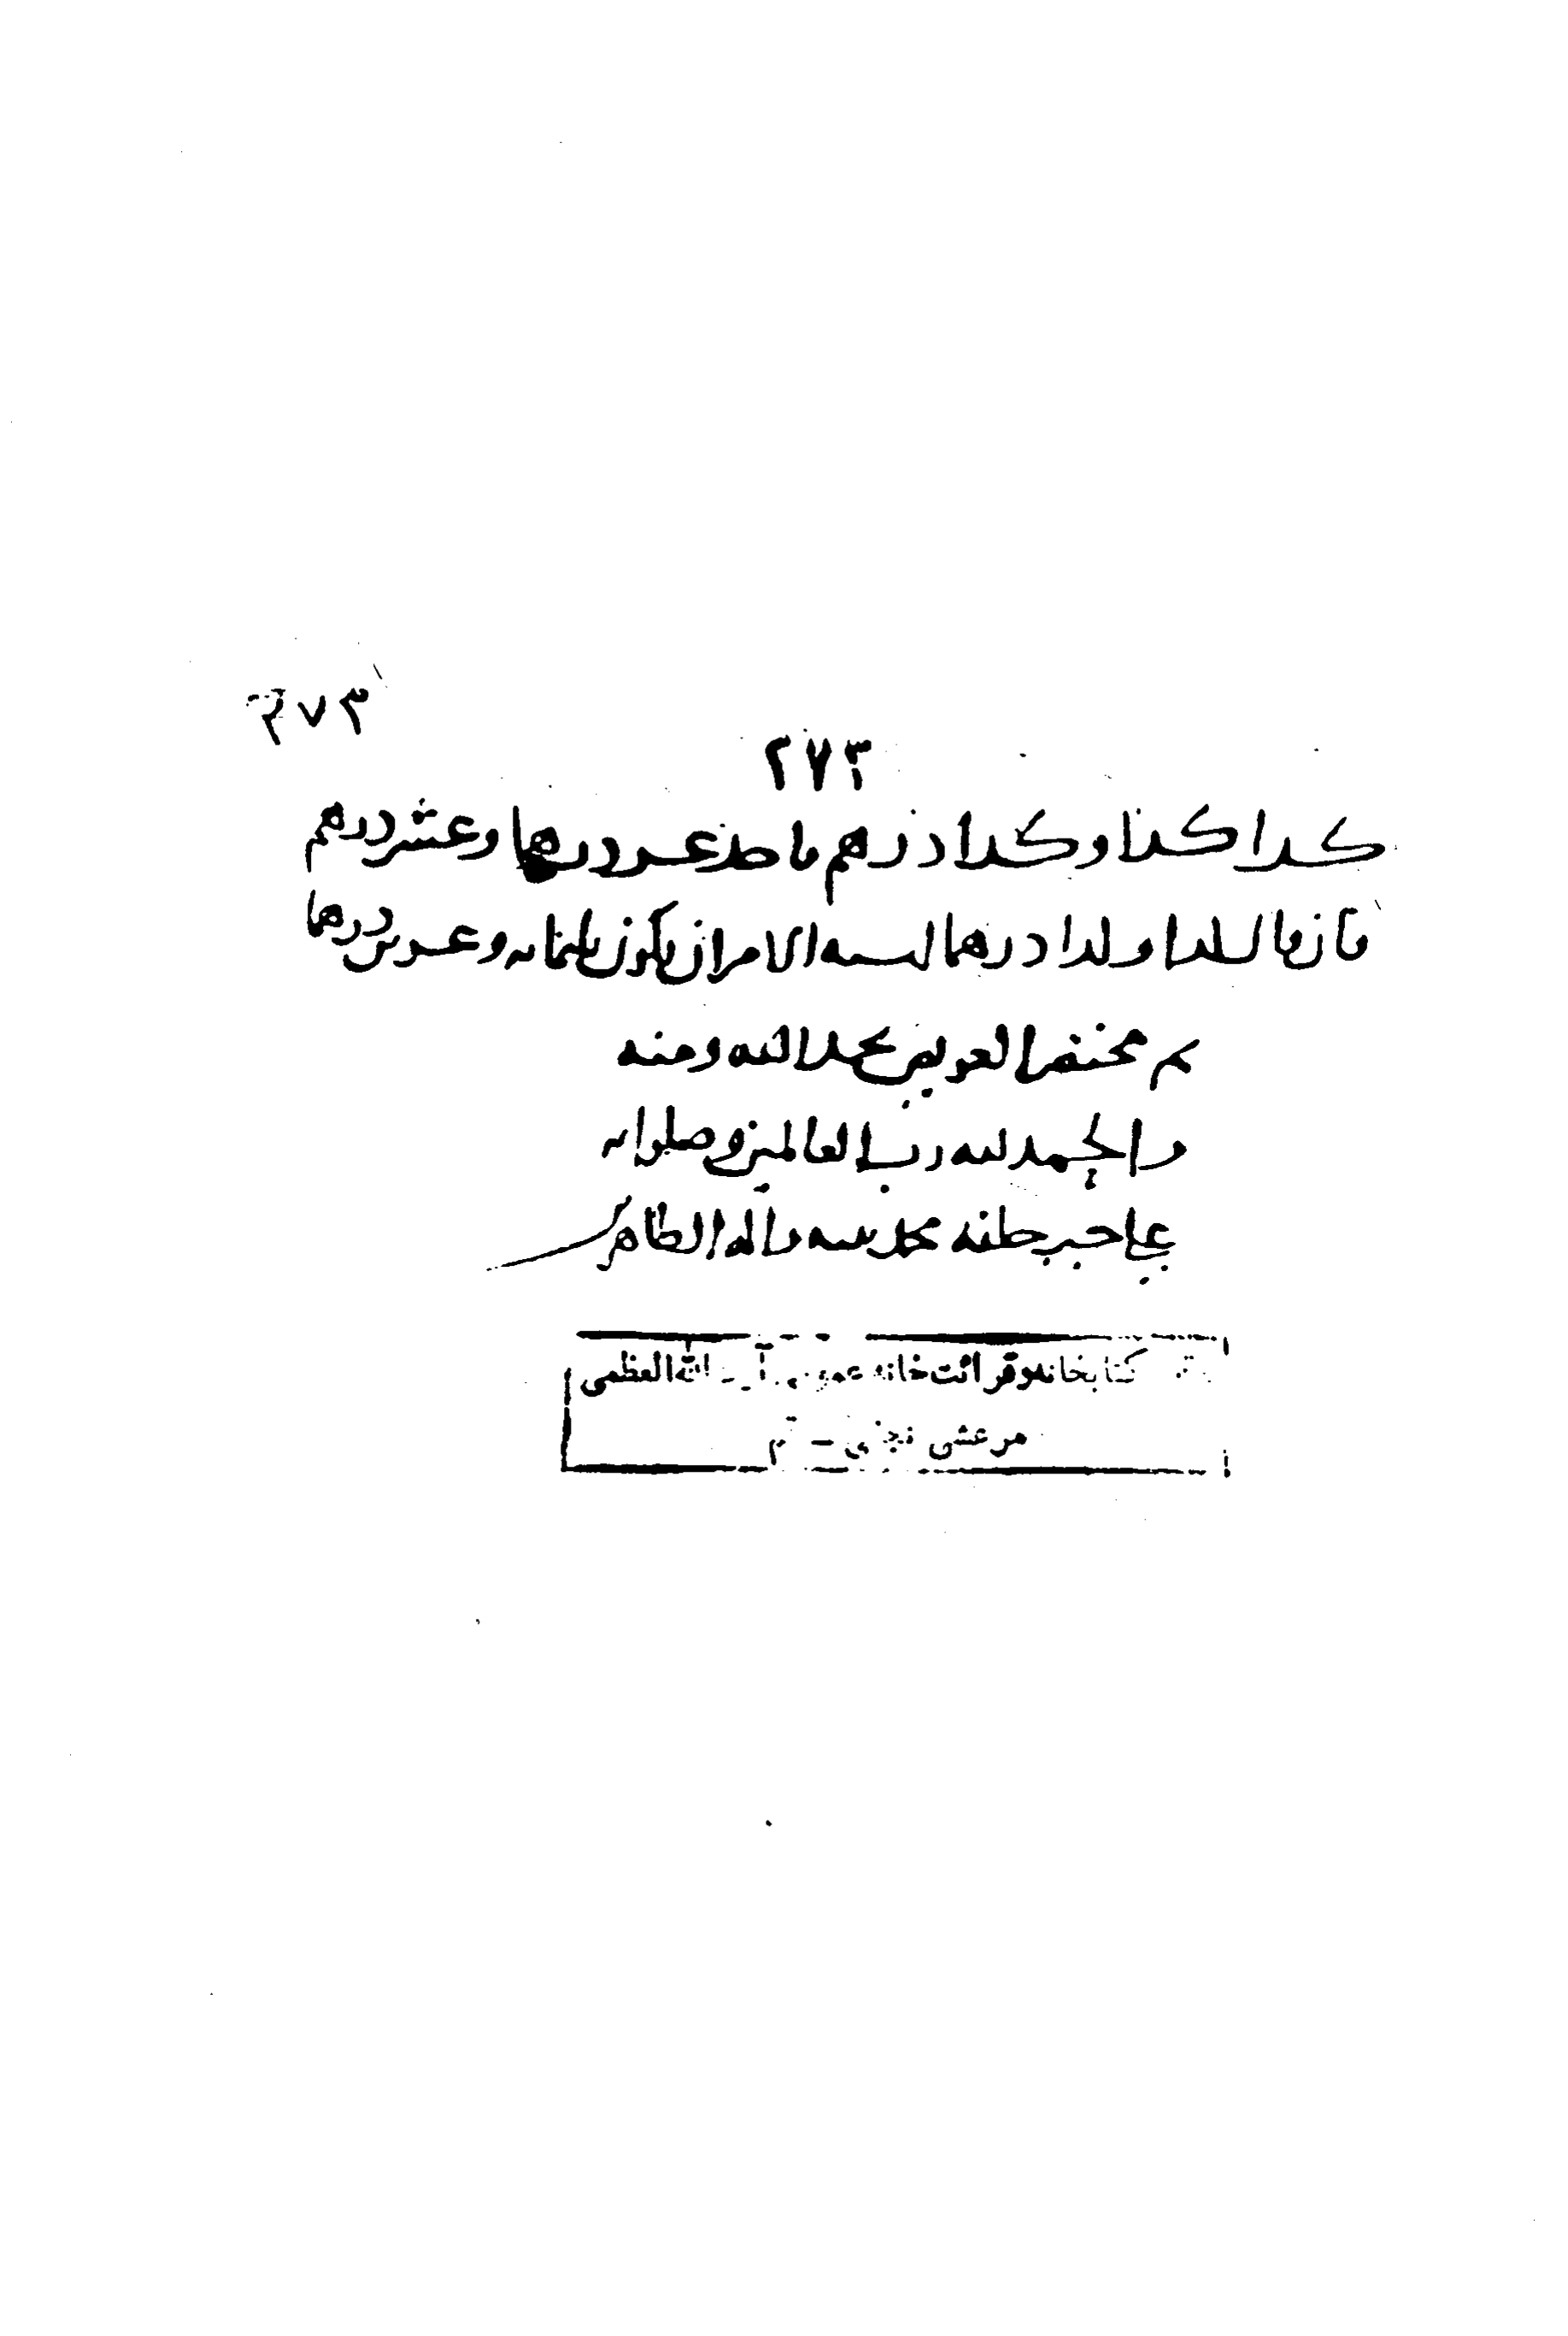 ٢٧٣
٢٧٣
كذا كذا وكذا درهم احد عشر درهما وعشر درهم
فان قال كذا وكذا درهما اشبه الامر ان يكون ثلثمائه وعشرين درهما
تم مختصر العويص بحمد الله ومنه
والحمد لله رب العالمين وصلواته
على خير خلقه محمد نبيه واله الطاهرين
كتابخانه و قرائت خانه عمومی آیت الله العظمی
مرعشی نجفی - قم